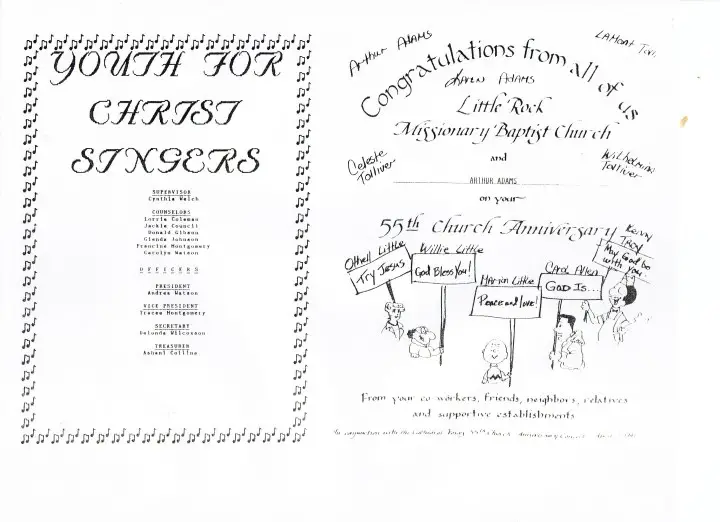 YOUTH FOR
CHRIST
SINGERS
SUPERVISOR
Cynthia Welch
COUNSELORS
Lorris Coleman
Jackie Council
Donald Gibson
Glenda Johnson
Francine Montgomery
Carolyn Watson
OFFICERS
PRESIDENT
Andrea Watson
VICE PRESIDENT
Tracee Montgomery
SECRETARY
Delonda Wilcoxson
TREASURER
Ashani Collins
Arthur ADAMS
LAMont
Congratulations from all of us
Karen ADAMS
Little Rock
Missionary Baptist Church
Celeste
Tolliver
and
Wilhelmina
Tolliver
ARTHUR ADAMS
on your
55th Church Anniversary
Kenny
Troy
Othell Little
Willie Little
Try Jesus
God Bless You!
May God be
with you
Marion Little
Carol Allen
Peace and love!
GOD IS...
From your co-workers, friends, neighbors, relatives
and supportive establishments
In conjunction with the 55th Church Anniversary